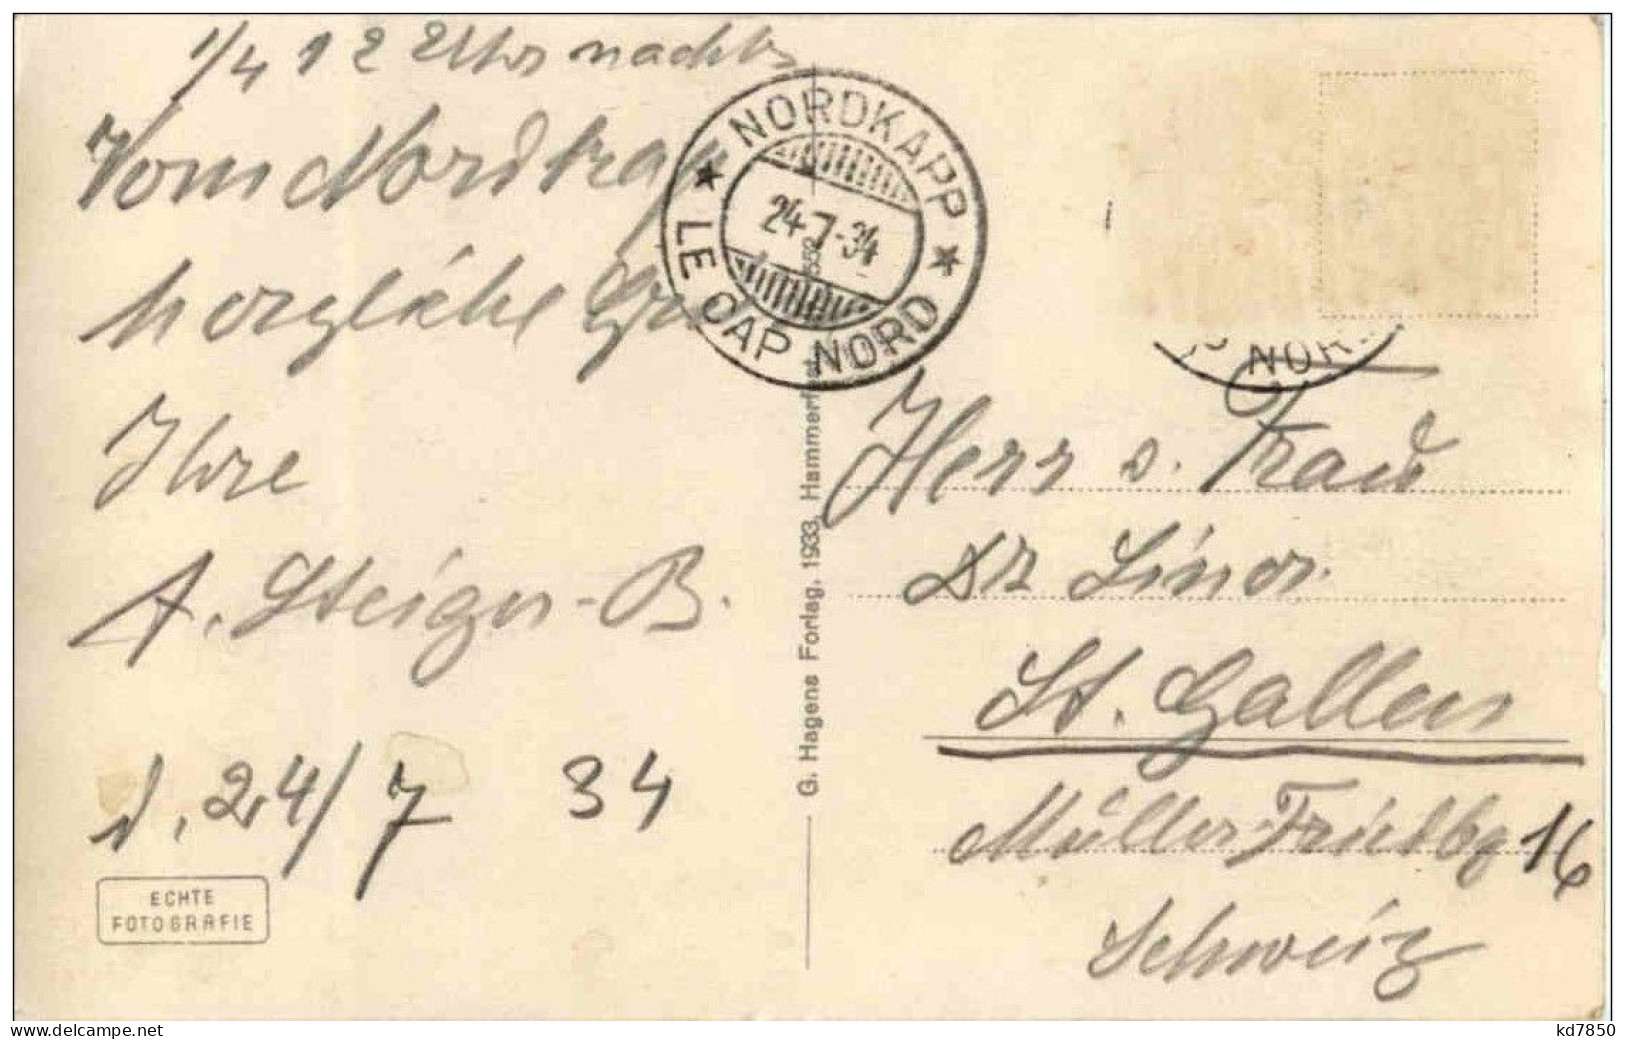 1/4 12 Uhr nachts
Vom Nordkap
herzliche Grü
Ihre
A. Steiger-B.
d. 24/7 34
ECHTE
FOTOGRAFIE
NORDKAPP
24-7-34
LE CAP NORD
552
G. Hagens Forlag, 1933, Hammerfest
NOR
Herr u. Frau
Dr
St. Gallen
Müller-Friedbg 16
Schweiz
kd7850